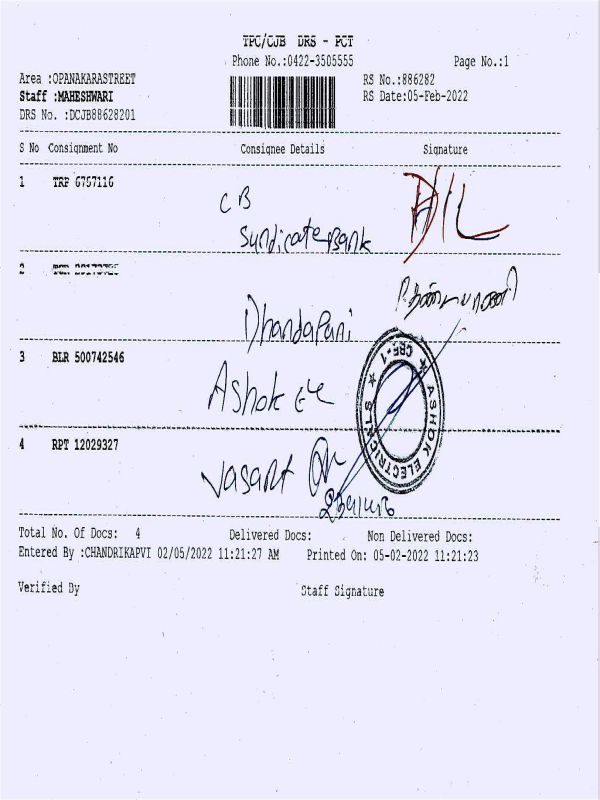 TPC/CJB DRS - PCT
Phone No.:0422-3505555 Page No.:1
Area :OPANAKARASTREET RS No.:886282
Staff :MAHESHWARI RS Date:05-Feb-2022
DRS No. :DCJB88628201
S No Consignment No Consignee Details Signature
1 TRP 6757116 CB
Syndicate Bank
2
Dhandapani
3 BLR 500742546 Ashok Ele
ASHOK ELECTRICALS
CBE-1
4 RPT 12029327 Vasant
Total No. Of Docs: 4 Delivered Docs: Non Delivered Docs:
Entered By :CHANDRIKAPVI 02/05/2022 11:21:27 AM Printed On: 05-02-2022 11:21:23
Verified By Staff Signature